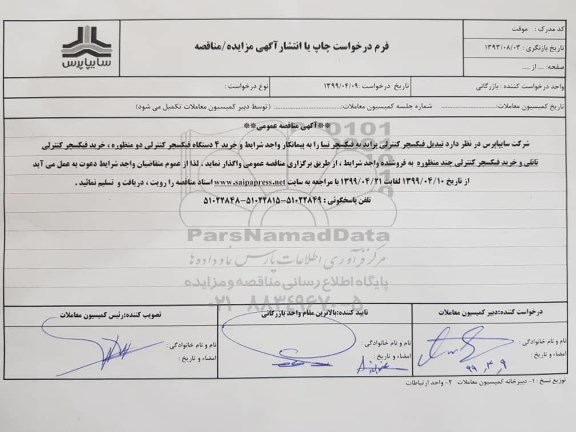 کد مدرک : موقت
تاریخ بازنگری : ۱۳۹۳/۰۸/۰۳
صفحه: ... از ....
فرم درخواست چاپ یا انتشار آگهی مزایده/مناقصه
سایپاپرس
واحد درخواست کننده : بازرگانی
تاریخ درخواست: ۱۳۹۹/۰۴/۰۹
نوع درخواست :
تاریخ کمیسیون معاملات: شماره جلسه کمیسیون معاملات: (توسط دبیر کمیسیون معاملات تکمیل می شود)
**آگهی مناقصه عمومی**
شرکت سایپاپرس در نظر دارد تبدیل فیکسچر کنترلی پراید به فیکسچر تیبا را به پیمانکار واجد شرایط و خرید ۴ دستگاه فیکسچر کنترلی دو منظوره ، خرید فیکسچر کنترلی
تانلی و خرید فیکسچر کنترلی چند منظوره به فروشنده واجد شرایط ، از طریق برگزاری مناقصه عمومی واگذار نماید . لذا از عموم متقاضیان واجد شرایط دعوت به عمل می آید
از تاریخ ۱۳۹۹/۰۴/۱۰ لغایت ۱۳۹۹/۰۴/۲۱ با مراجعه به سایت www.saipapress.net اسناد مناقصه را رویت ، دریافت و تسلیم نمائید .
تلفن پاسخگوئی : ۵۱۰۲۲۸۴۹-۵۱۰۲۲۸۱۵-۵۱۰۲۲۸۴۸
ParsNamadData
مرکز فرآوری اطلاعات پارس نماد داده ها
پایگاه اطلاع رسانی مناقصه و مزایده
۰۲۱-۸۸۳۴۹۶۷۰-۵
درخواست کننده:دبیر کمیسیون معاملات
تایید کننده:بالاترین مقام واحد بازرگانی
تصویب کننده:رئیس کمیسیون معاملات
نام و نام خانوادگی :
امضاء و تاریخ :
۹۹_۴_۹
نام و نام خانوادگی :
امضاء و تاریخ :
نام و نام خانوادگی :
امضاء و تاریخ :
توزیع نسخ : ۱- دبیرخانه کمیسیون معاملات ۲- واحد ارتباطات